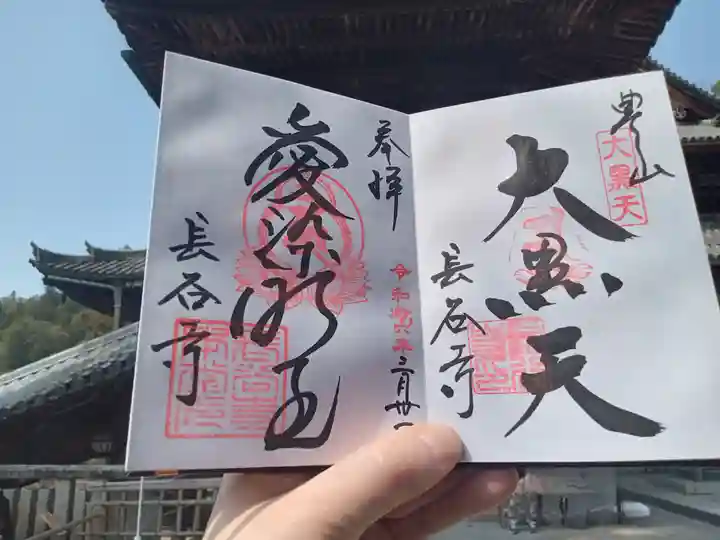 豊山
大黒天
大黒天
長谷寺
奉拝
令和六年
三月廿一
愛染明王
長谷寺